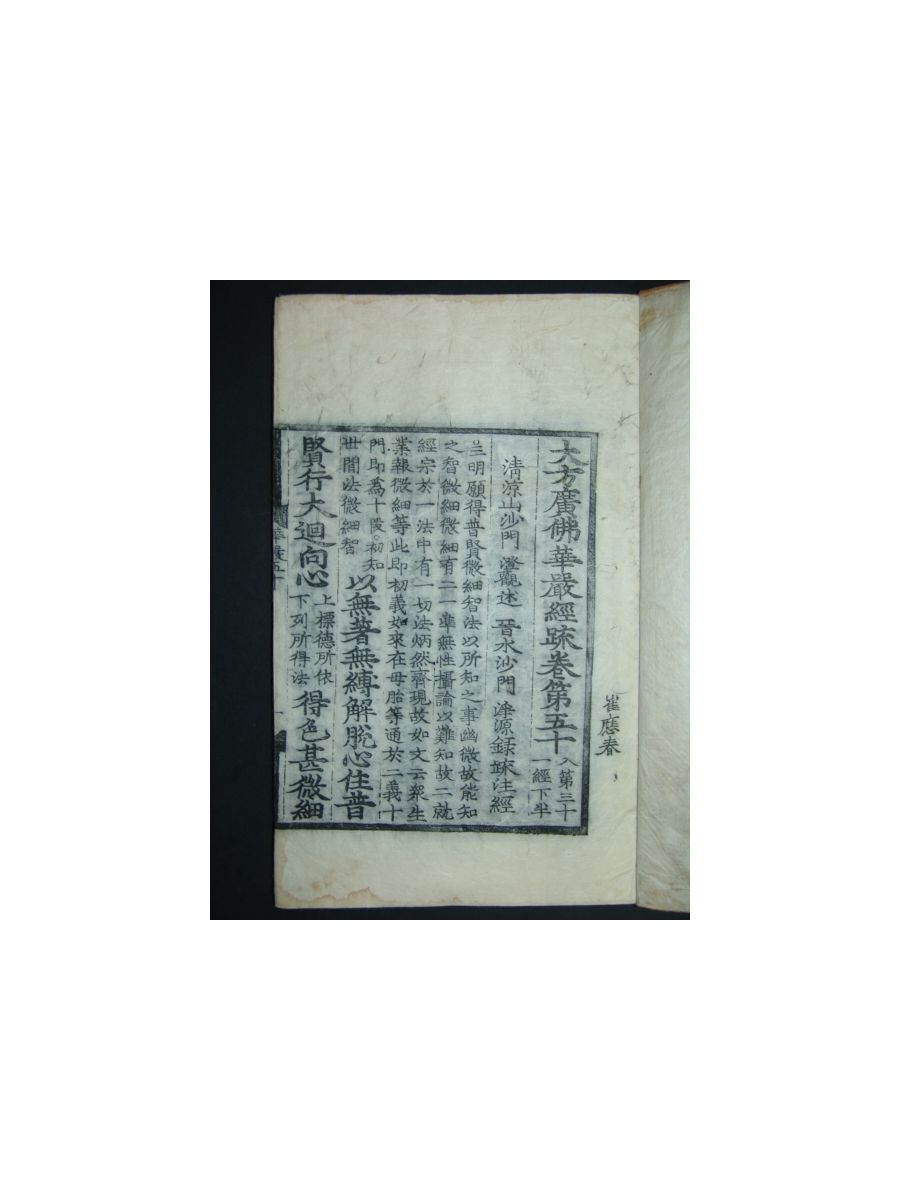 崔應春
大方廣佛華嚴經疏卷第五十 入第三十
一經下半
清涼山沙門 澄觀述 晉水沙門 淨源録疏注經
三明願得普賢微細智法以所知之事幽微故能知
之智微細微細有二一準無性攝論以難知故二就
經宗於一法中有一切法炳然齊現故如文云衆生
業報微細等此即初義如來在母胎等通於二義十
門即爲十段。初知
世間法微細智 以無著無縛解脫心住普
賢行大迴向心 上標德所依
下列所得法 得色甚微細